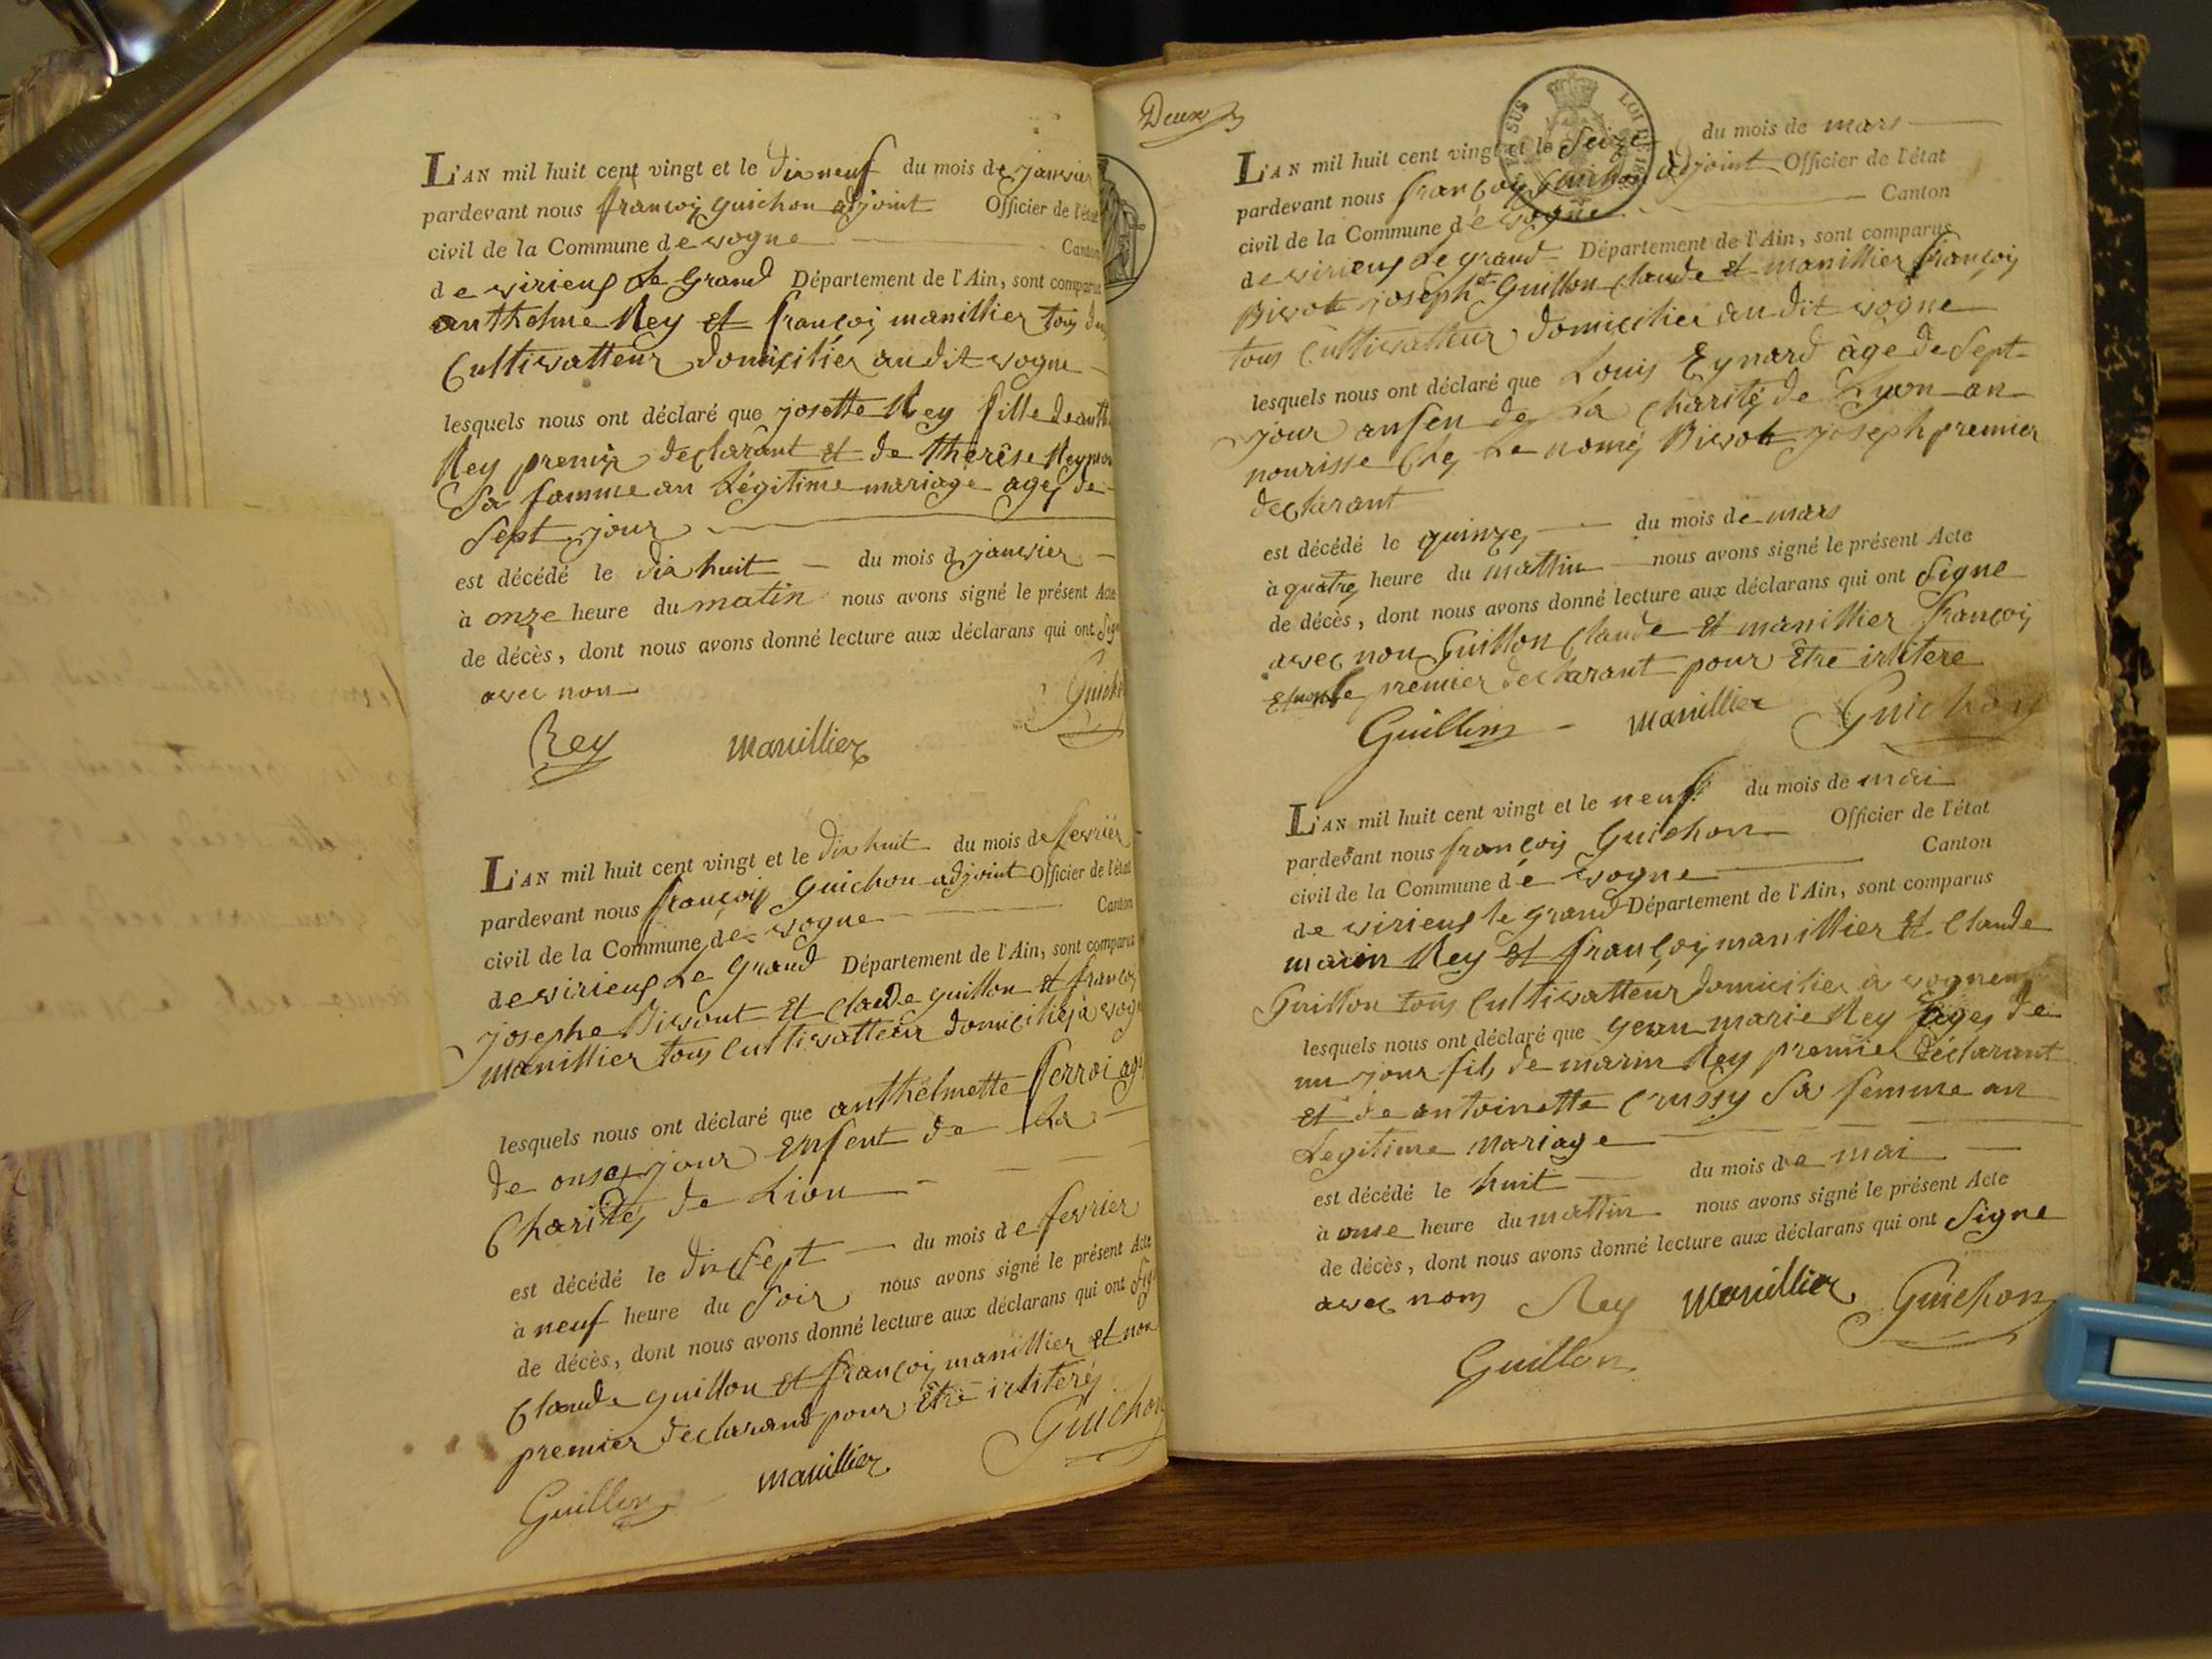 L'AN mil huit cent vingt et le dix neuf du mois de janvier
pardevant nous françois guichon adjoint Officier de l'état
civil de la Commune de vogne Canton
de virieus Le Grand Département de l'Ain, sont comparus
anthelme Rey et françois manillier tous
Cultivatteur domicilier au dit vogne
lesquels nous ont déclaré que josette Rey fille de
Rey premier declarant et de therèse
Sa famme an Légitime mariage agés de
Sept jour
est décédé le dix huit du mois de janvier
à onze heure du matin nous avons signé le présent Acte
de décès, dont nous avons donné lecture aux déclarans qui ont
avec nou
Rey manillier
L'AN mil huit cent vingt et le dix huit du mois de fevrier
pardevant nous françois Guichon adjoint Officier de l'état
civil de la Commune de vogne Canton
de virieus Le Grand Département de l'Ain, sont comparus
josephe Bivout et Claude guillon et françois
manillier tous Cultivatteur domicilier à
lesquels nous ont déclaré que anthelmette ferroi
de onse jour Enfent de La
Charité de Lion
est décédé le dix Sept du mois de fevrier
à neuf heure du Soir nous avons signé le présent Acte
de décès, dont nous avons donné lecture aux déclarans qui ont
Claude guillon et françois manillier et non
premier declarant pour Etre irliteré
Guillon manillier Guichon
Deux
SUS LOI DE
L'AN mil huit cent vingt et le Seize du mois de mars
pardevant nous françois Guichon adjoint Officier de l'état
civil de la Commune de vogne Canton
de virieus Le grand Département de l'Ain, sont comparus
Bivot joseph et Guillon Claude et manillier françois
tous Cultivatteur domicilier au dit vogne
lesquels nous ont déclaré que Louis Eynard âge de Sept
jour anfen de La Charité de Lyon an
nourisse Ches Le nomé Bivot joseph premier
declarant
est décédé le quinze du mois de mars
à quatre heure du mattin nous avons signé le présent Acte
de décès, dont nous avons donné lecture aux déclarans qui ont Signe
avec nou Guillon Claude et manillier françois
premier declarant pour Etre irlitere
Guillon manillier Guichon
L'AN mil huit cent vingt et le neuf du mois de mai
pardevant nous françois Guichon Officier de l'état
civil de la Commune de vogne Canton
de virieus le grand Département de l'Ain, sont comparus
marin Rey et françois manillier et Claude
Guillon tous Cultivatteur domicilier a vogne
lesquels nous ont déclaré que jean marie Rey ages de
un jour fils de marin Rey premier declarant
et de antoinette Crussy Sa femme an
Legitime mariage
est décédé le huit du mois de mai
à onse heure du mattin nous avons signé le présent Acte
de décès, dont nous avons donné lecture aux déclarans qui ont Signe
avec nous Rey manillier Guichon
Guillon